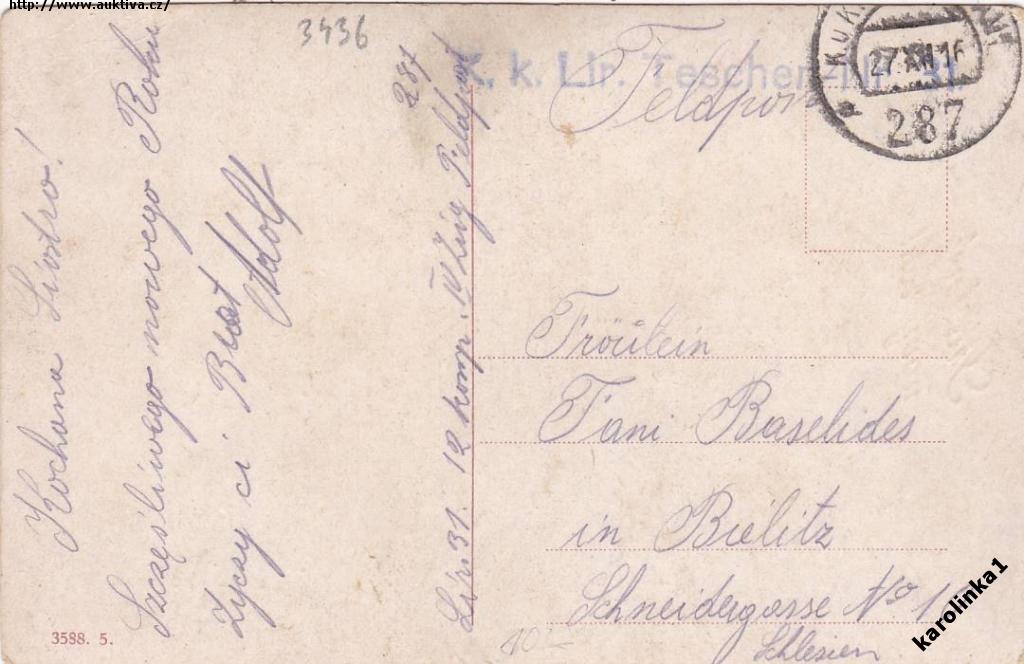 http://www.auktiva.cz/
3436
Kochana Siostro!
Szczęśliwego nowego Roku
życzy ci Brat
Adolf
Lir. 31. 12 komp. IV Zug Feldpost
287
K. k. Lir. Teschen Nr. 31.
Feldpost
K. u. K.
27.XII.16
287
Fröulein
Fani Baselides
in Bielitz
Schneidergasse No
Schlesien
3588. 5.
karolinka1